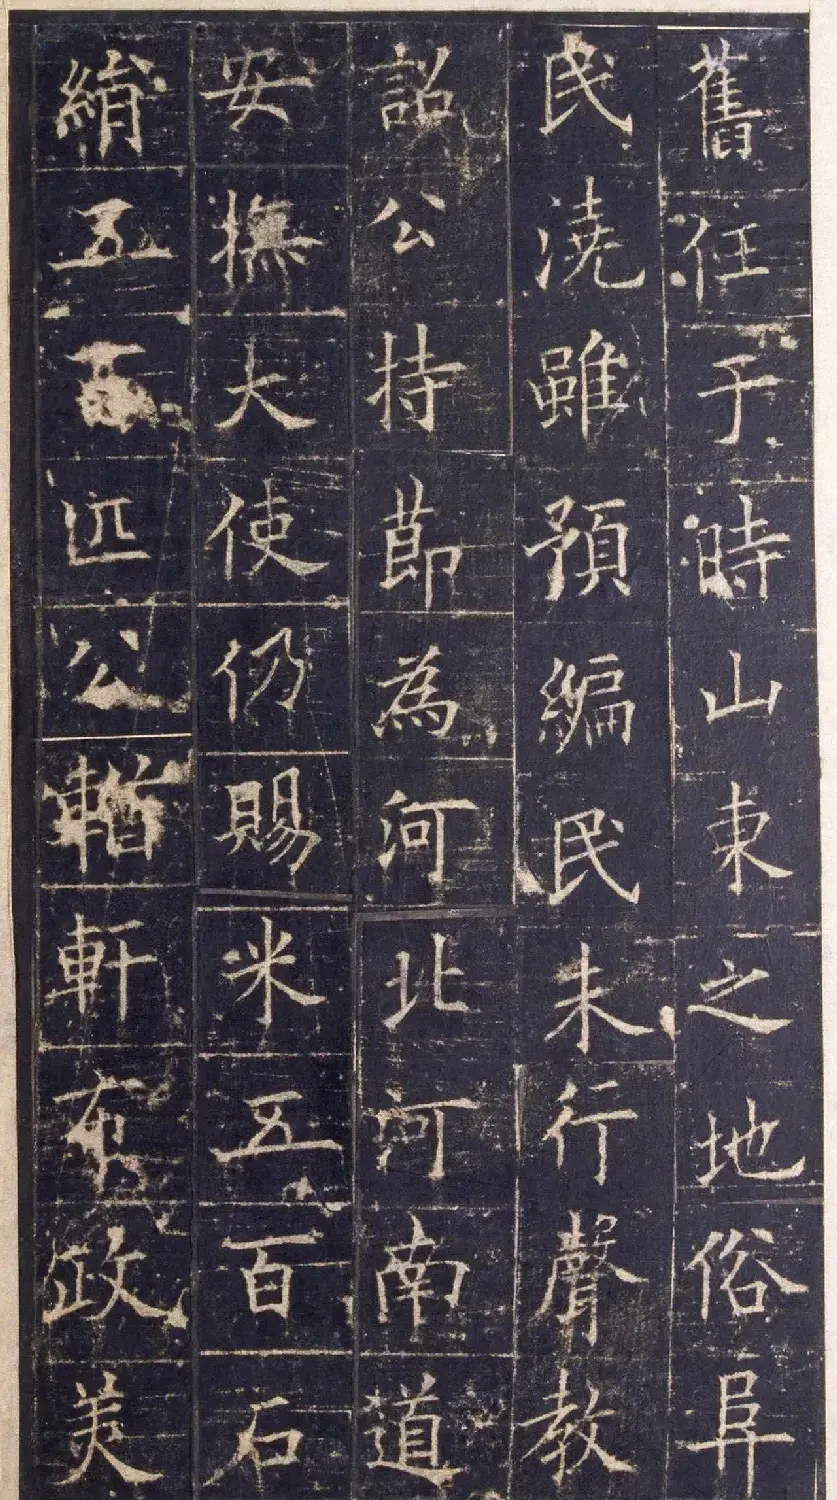 舊任于時山東之地俗阜
民澆雖預編民未行聲教
詔公持節為河北河南道
安撫大使仍賜米五百石
絹五百匹公輶軒布政美